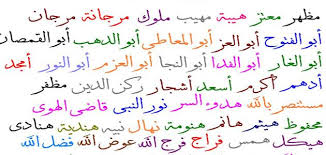 مظهر معتز هيبة مهيب ملوك مرجانة مرجان
أبو الفتوح أبو العز أبو المعاطي أبو الدهب أبو القمصان
أبو الغار أبو الفدا أبو النجا أبو العزم أبو النور أمجد
أدهم أكرم أسعد أشجار ركن الدين مظفر
مستنصر بالله هدوء السر نور النبي قاضي الهوى
محفوظ هيثم هانم هنومة نهال نبيه هندية هنادي
هيكل همس فراج فرج الله عوض الله فضل الله